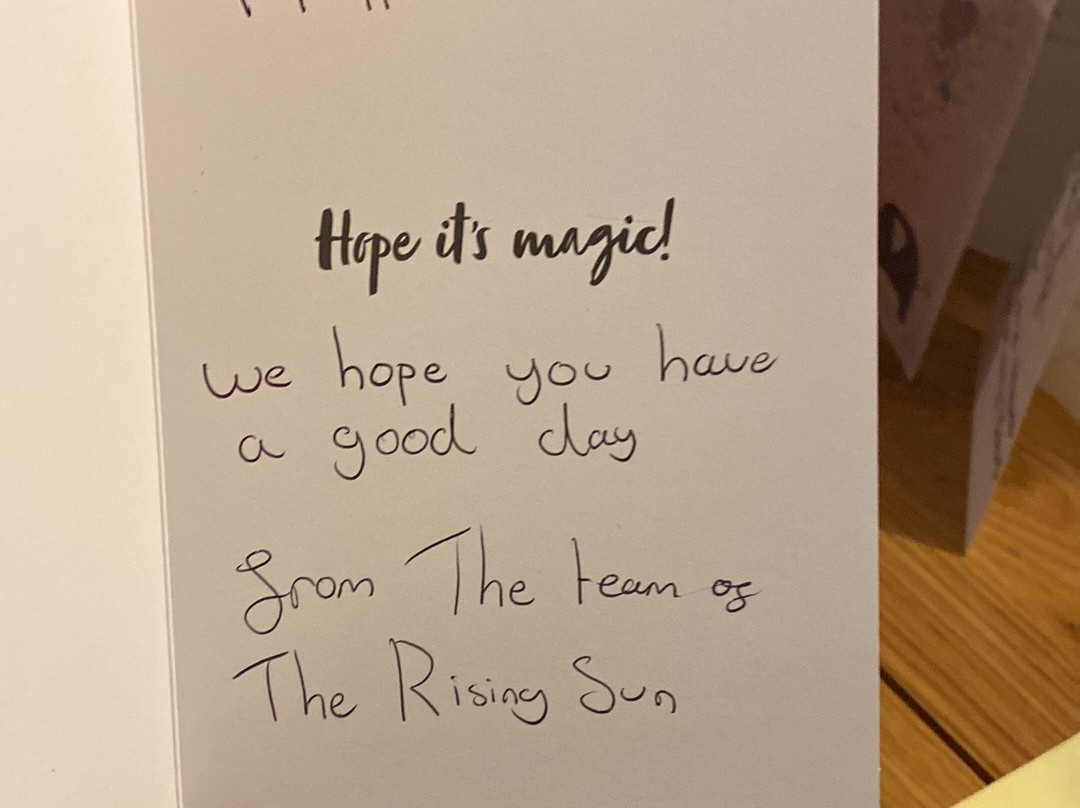 Hope it's magic!
we hope you have
a good day
from The team of
The Rising Sun